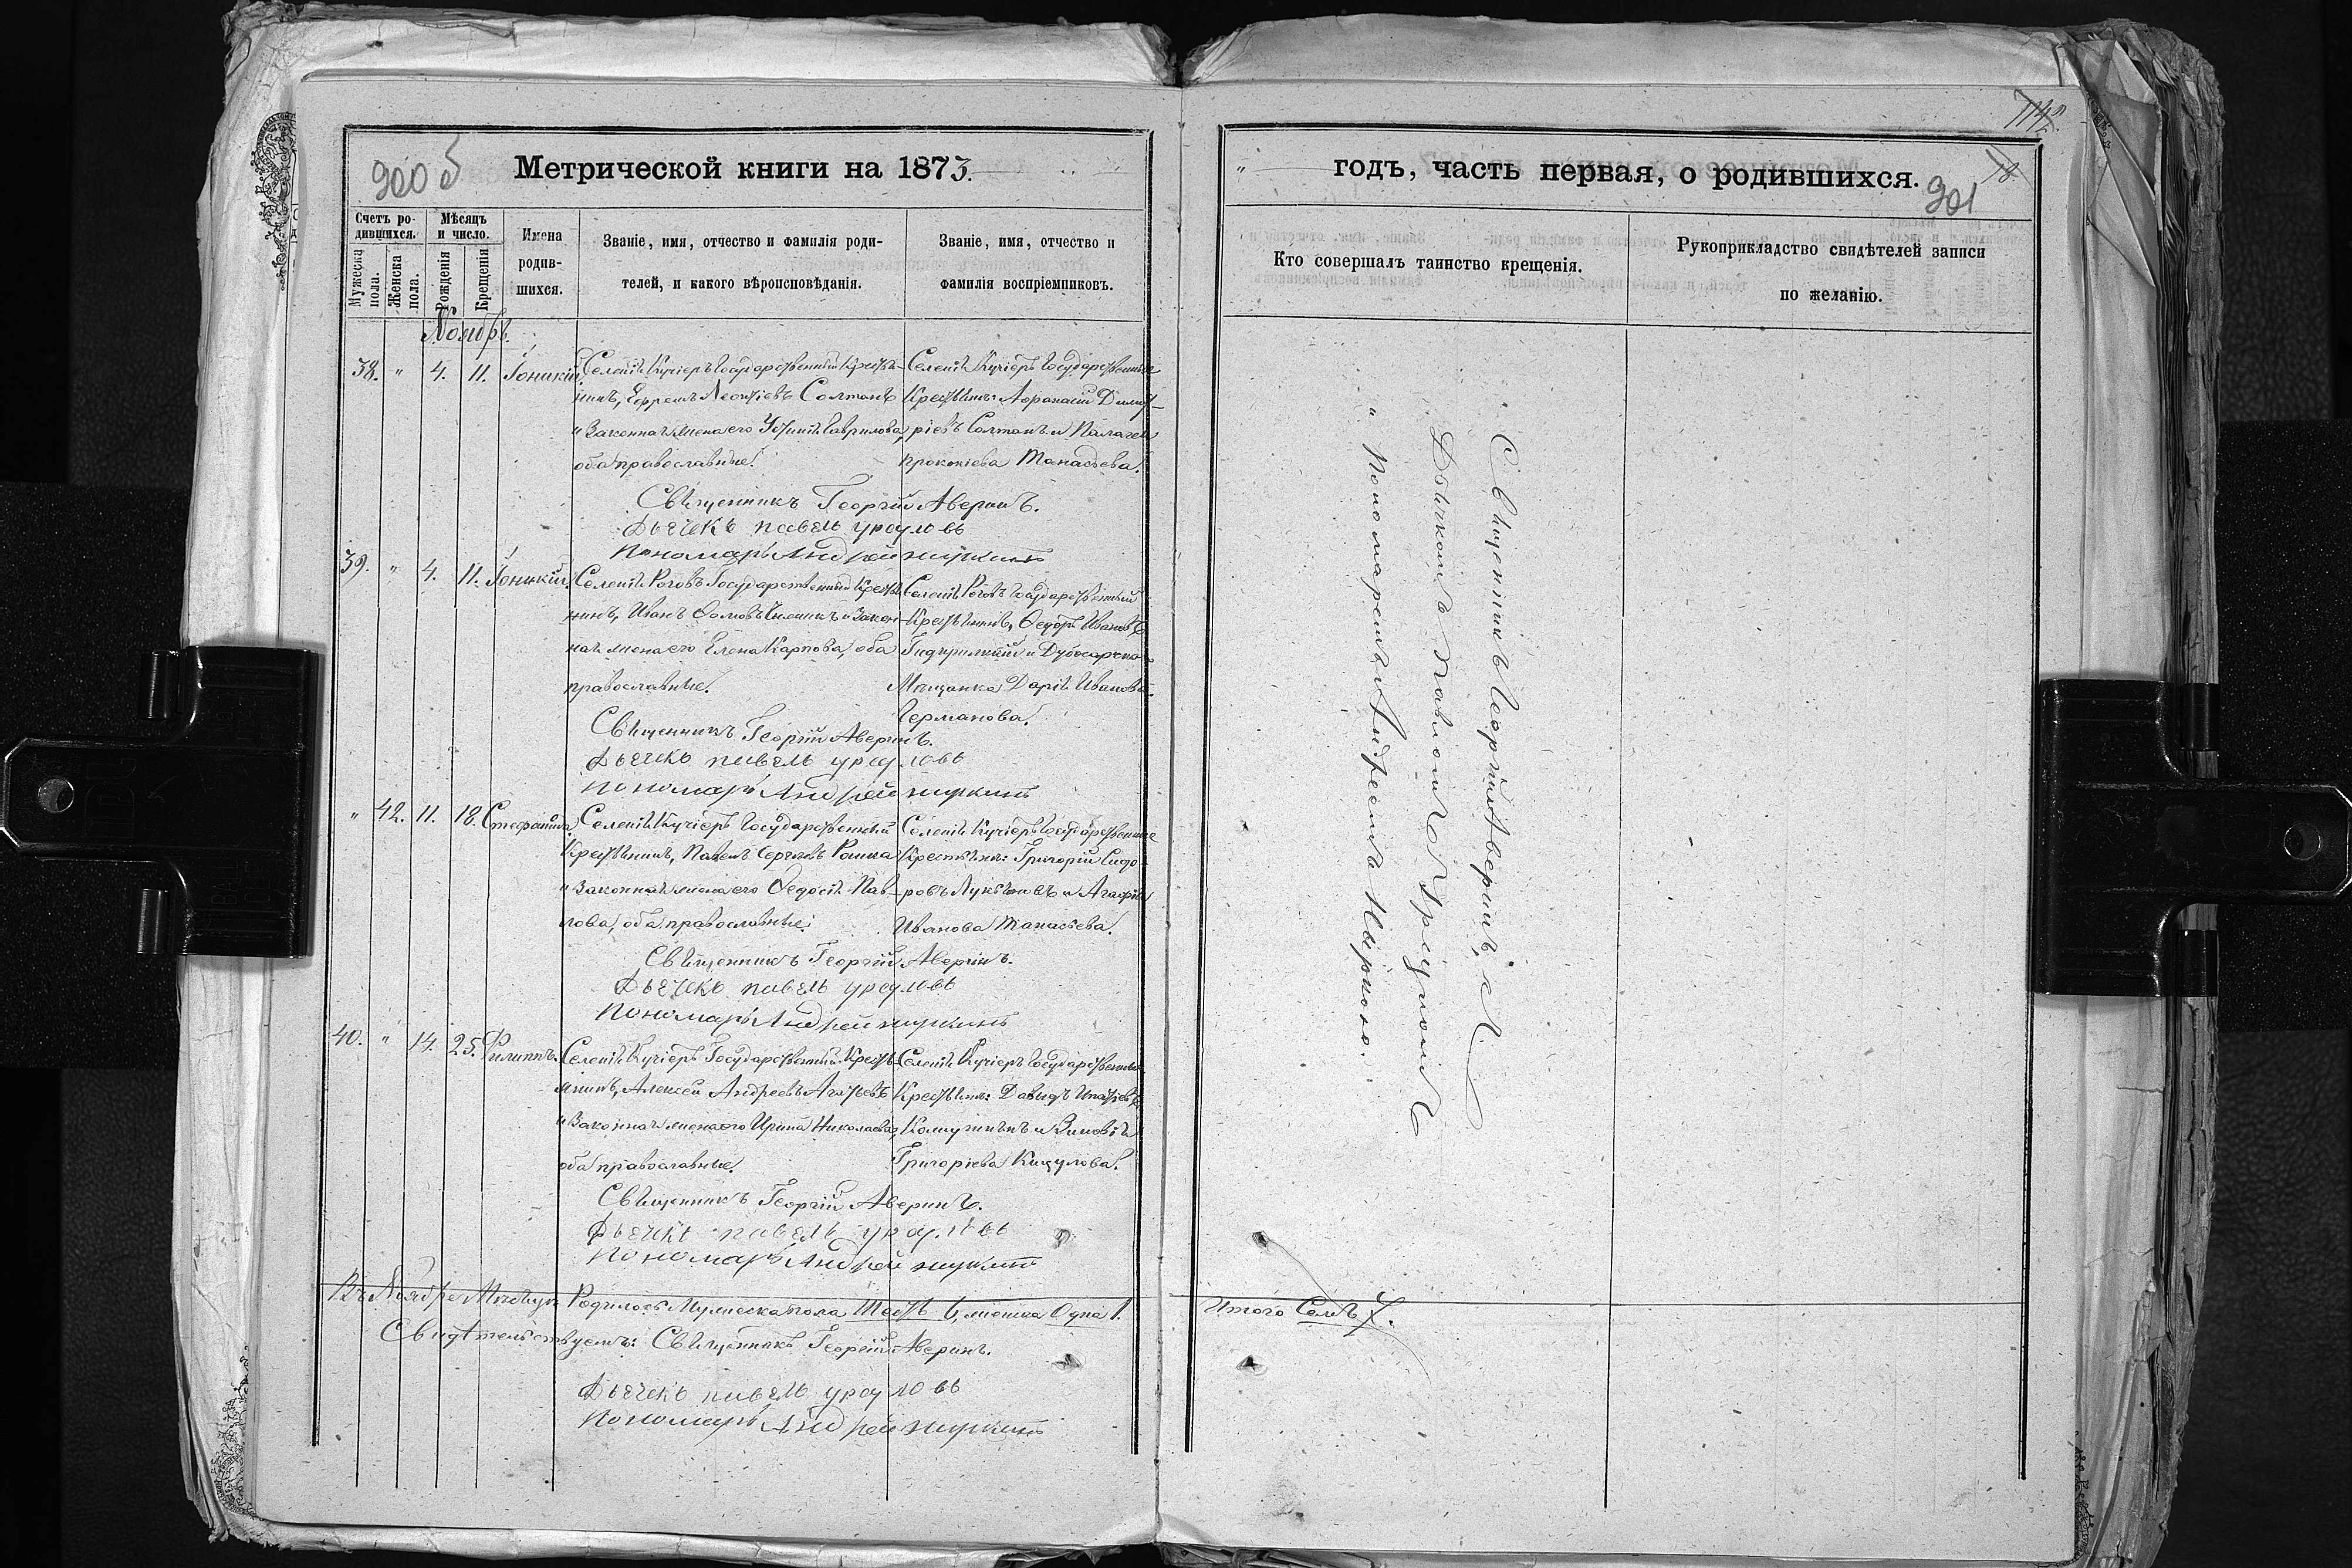 900 б
Метрической книги на 1873.
Счетъ ро-
дившихся.
Мѣсяцъ
и число.
Мужеска
пола.
Женска
пола.
Рожденія
Крещенія
Имена
родив-
шихся.
Званіе, имя, отчество и фамилія роди-
телей, и какого вѣроисповѣданія.
Званіе, имя, отчество и
фамилія воспріемниковъ.
Ноябрь.
38. " 4. 11. Іоникій.
Селенія Кучіеръ Государственный Крестья-
нинъ, Ефремъ Леонтіевъ Солтанъ
и законная жена его Устинія Гаврилова,
оба православные.
Селенія Кучіеръ Государственные
Крестьяне: Афанасій Димит-
ріевъ Солтанъ и Палагея
Прокопіева Танасьева.
Священникъ Георгій Аверинъ.
Дьячекъ Павелъ Урсуловъ
Пономарь Андрей
39. " 4. 11. Іоникій.
Селенія Роговъ Государственный Крестья-
нинъ, Иванъ Фомовъ и закон-
ная жена его Елена Карпова, оба
православные.
Селенія Роговъ Государственный
Крестьянинъ, Федоръ Ивановъ
и Дубосарская
Мѣщанка Дарія Иванова
Германова.
Священникъ Георгій Аверинъ.
Дьячекъ Павелъ Урсуловъ
Пономарь Андрей
" 42. 11. 18. Стефанида
Селенія Кучіеръ Государственный
Крестьянинъ, Павелъ Сергіевъ Рошка
и законная жена его Федосія Пав-
лова, оба православные.
Селенія Кучіеръ Государственные
Крестьяне: Григорій Сидо-
ровъ Лукьяновъ и Агафія
Иванова Танасьева.
Священникъ Георгій Аверинъ.
Дьячекъ Павелъ Урсуловъ
Пономарь Андрей
40. " 14. 25. Филиппъ.
Селенія Кучіеръ Государственный Кресть-
янинъ, Алексѣй Андреевъ Агатьевъ
и законная жена его Ирина Николаева,
оба православные.
Селенія Кучіеръ Государственные
Крестьяне: Давидъ Игнатіевъ
и Зиновія
Григоріева Кицулова.
Священникъ Георгій Аверинъ.
Дьячекъ Павелъ Урсуловъ
Пономарь Андрей
Въ Ноябрѣ Мѣсяцѣ Родилось Мужеска пола Шесть 6, женска Одна 1.
Свидѣтельствуемъ: Священникъ Георгій Аверинъ.
Дьячекъ Павелъ Урсуловъ
Пономарь Андрей
годъ, часть первая, о родившихся.
901
Кто совершалъ таинство крещенія.
Рукоприкладство свидѣтелей записи
по желанію.
Священникъ Георгій Аверинъ, съ
Дьячкомъ Павломъ Урсуломъ
и Пономаремъ Андреемъ
Итого Семь 7.